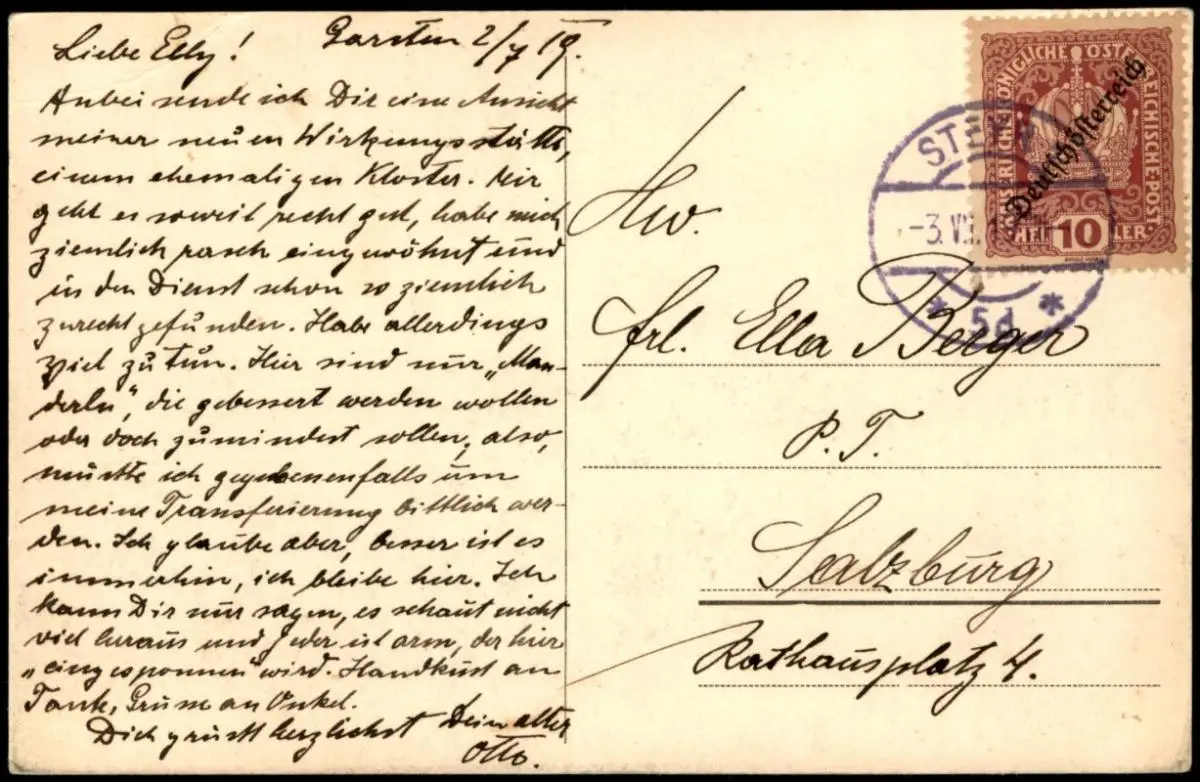 Garsten 2/7 19.
Liebe Elly!
Anbei sende ich Dir eine Ansicht
meiner neuen Wirkungsstätte,
einem ehemaligen Kloster. Mir
geht es soweit recht gut, habe mich
ziemlich rasch eingewöhnt und
in den Dienst schon so ziemlich
zurecht gefunden. Habe allerdings
viel zu tun. Hier sind nur „Man-
derln", die gebessert werden wollen
oder doch zumindest sollen, also,
müsste ich gegebenenfalls um
meine Transferierung bittlich wer-
den. Ich glaube aber, besser ist es
immerhin, ich bleibe hier. Ich
kann Dir nur sagen, es schaut nicht
viel heraus und jeder ist arm, der hier
„eingesponnen" wird. Handkuß an
Tante, Grüsse an Onkel.
Dich grüsst herzlichst Dein alter
Otto.
KAISERLICHE KÖNIGLICHE ÖSTERREICHISCHE POST
Deutschösterreich
HELLER
10
-3.VII
* 5d *
Frl. Ella Berger
P. T.
Salzburg
Rathausplatz 4.